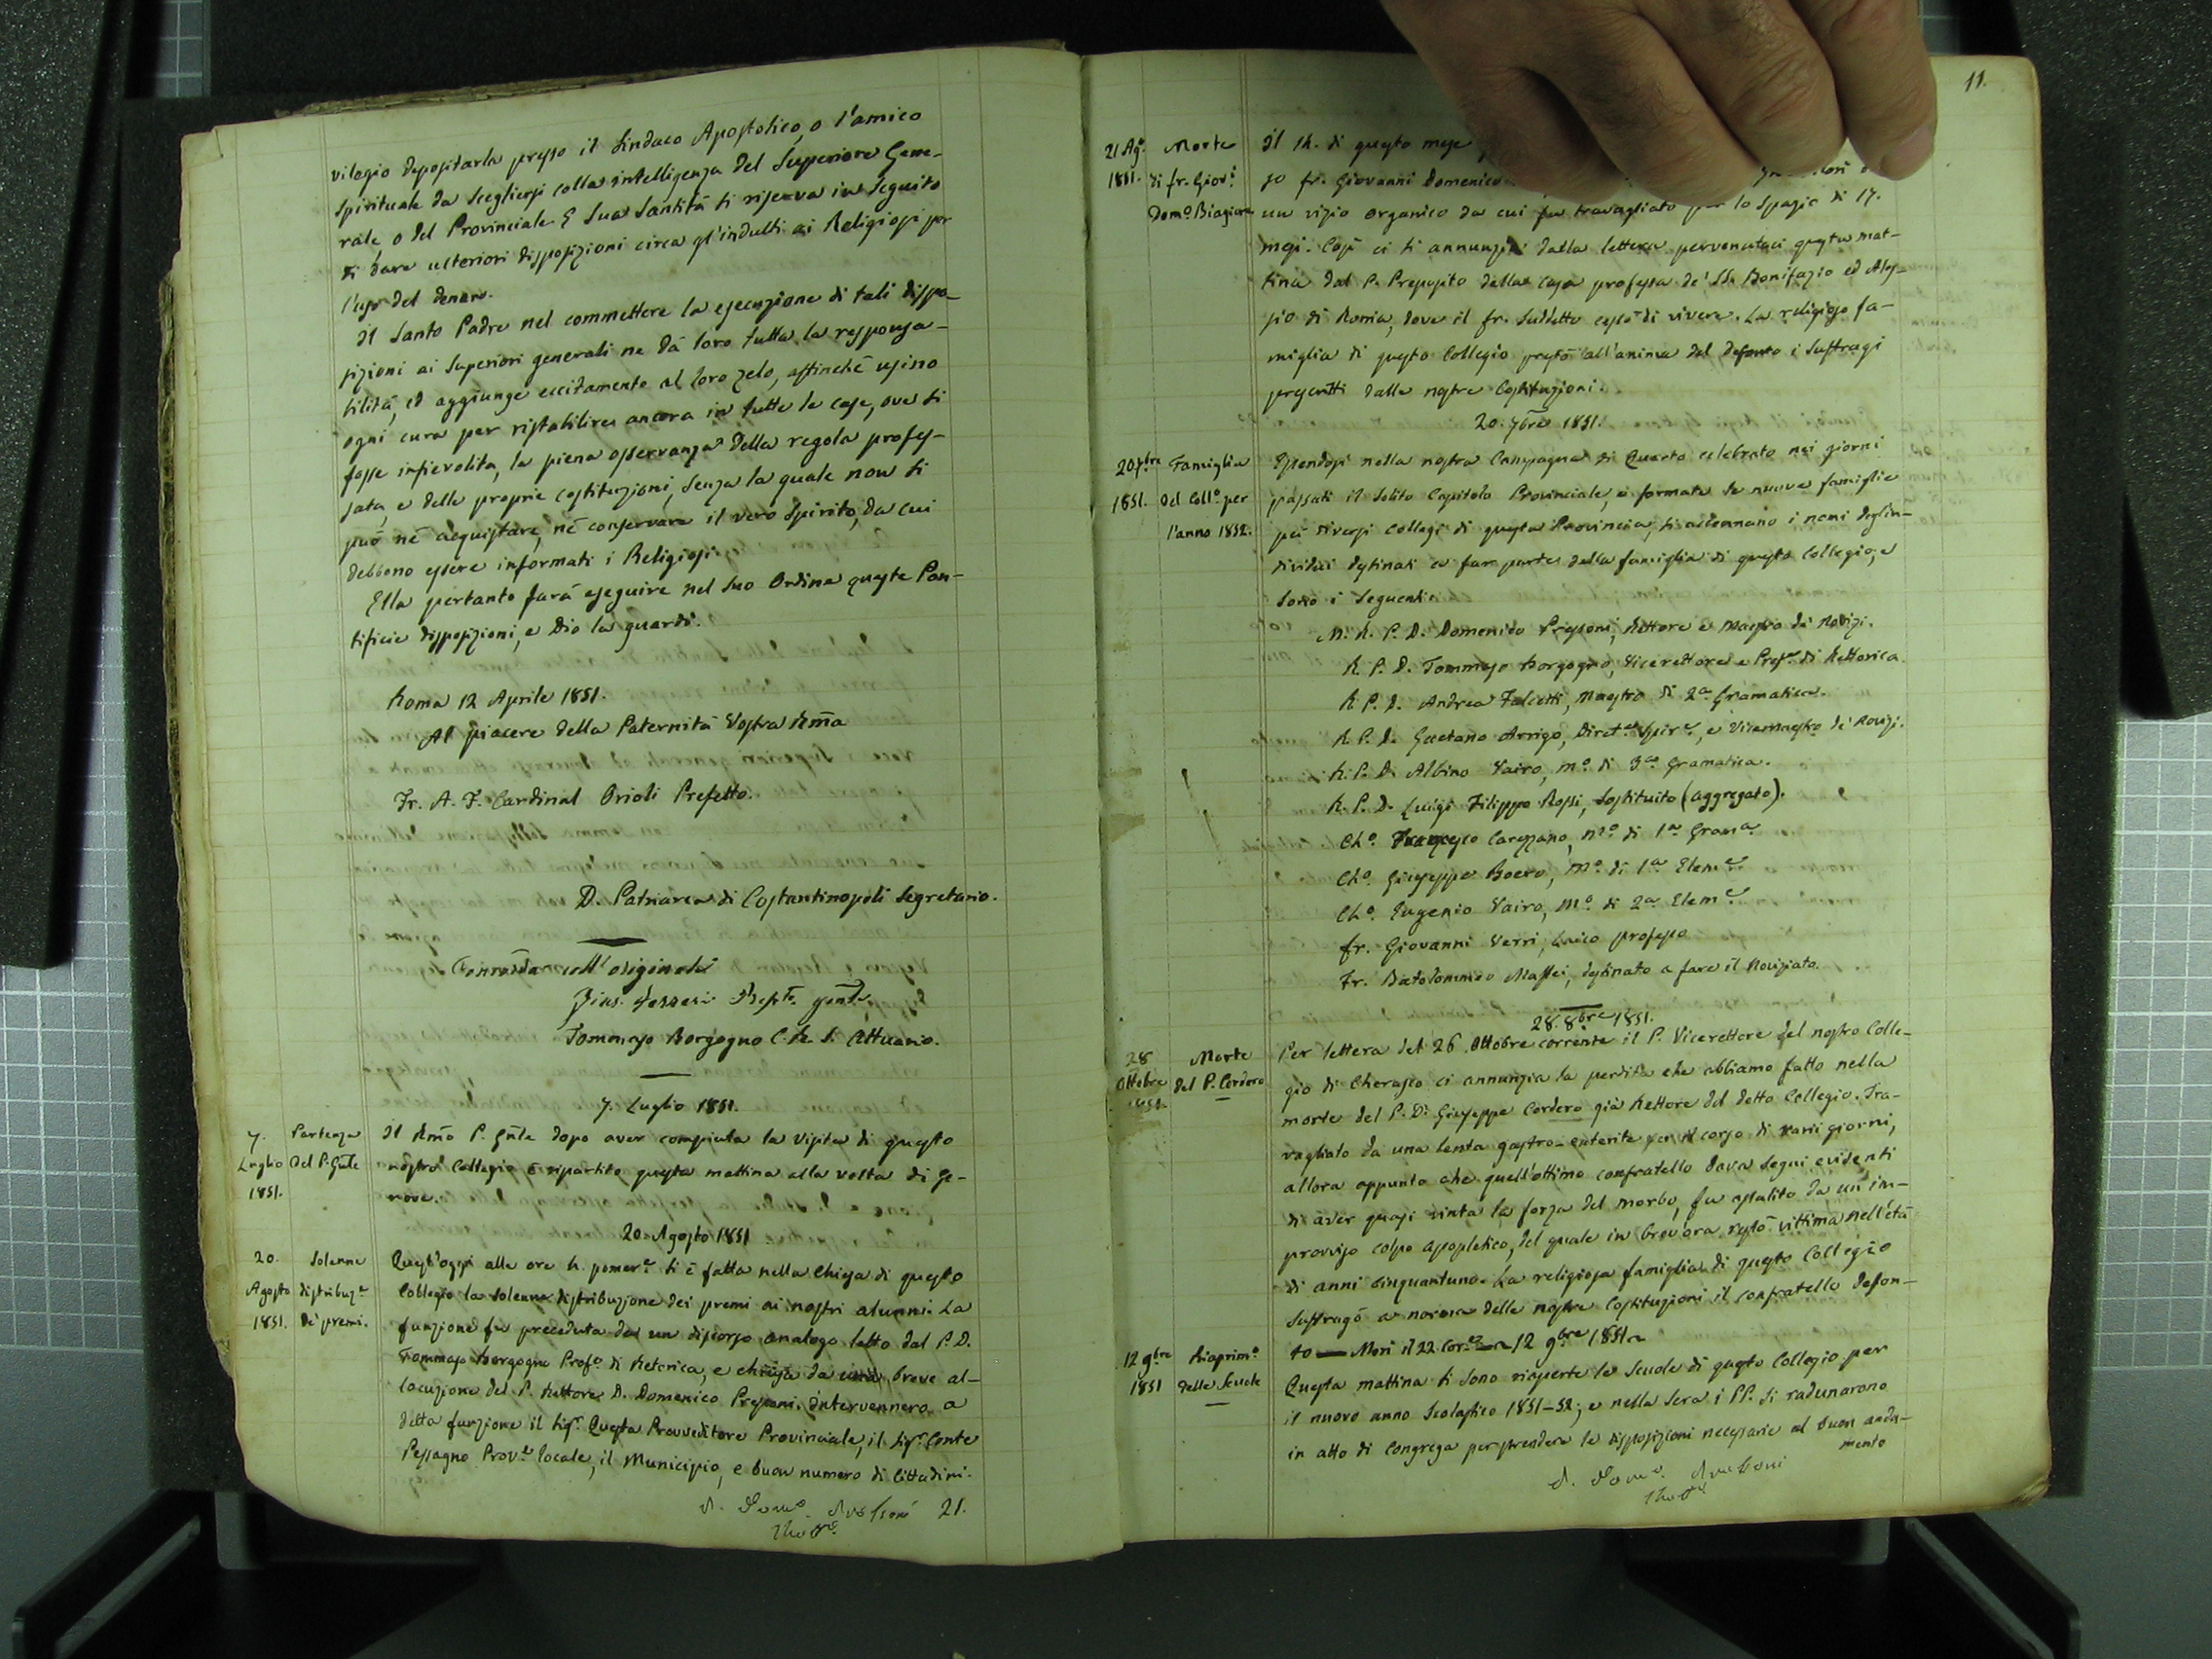 vilegio depositarla presso il Sindaco Apostolico, o l'amico
spirituale da scegliersi colla intelligenza del Superiore Gene-
rale, o del Provinciale. E Sua Santità si riserva in seguito
di dare ulteriori disposizioni circa gl'indulti ai Religiosi per
l'uso del denaro.
Il Santo Padre nel commettere la esecuzione di tali dispo-
sizioni ai Superiori generali ne dà loro tutta la responsa-
bilità, ed aggiunge eccitamento al loro zelo, affinchè usino
ogni cura per ristabilire ancora in tutte le case, ove si
fosse infievolita, la piena osservanza della regola profes-
sata, e delle proprie costituzioni, senza la quale non si
può nè acquistare, nè conservare il vero spirito, da cui
debbono essere informati i Religiosi.
Ella pertanto farà eseguire nel suo Ordine queste Pon-
tificie disposizioni, e Dio la guardi.
Roma 12 Aprile 1851.
Al piacere della Paternità Vostra Rma
Fr. A. F. Cardinal Orioli Prefetto.
D. Patriarca di Costantinopoli Segretario.
Concorda coll'originale
Tommaso Borgogno C. R. S. Attuario.
7. Luglio 1851.
7. Partenza Il Rmo P. Gnle dopo aver compiuta la visita di questo
Luglio del P. Gnle nostro Collegio è ripartito questa mattina alla volta di Ge-
1851. nova.
20 Agosto 1851
20. Solenne Quest'oggi alle ore 4. pomere si è fatta nella Chiesa di questo
Agosto distribuze Collegio la solenne distribuzione dei premi ai nostri alunni. La
1851. de' premi. funzione fu preceduta da un discorso analogo letto dal P. D.
Tommaso Borgogno Profe di Retorica, e chiusa da breve al-
locuzione del P. Rettore D. Domenico Pressoni. Intervennero a
detta funzione il Sigr. Questa Provveditore Provinciale, il Sigr. Conte
Pessagno Prove locale, il Municipio, e buon numero di Cittadini.
D. Domo Pressoni 21.
11.
21 Ago. Morte Il 14. di questo mese
1851. di fr. Giovi so fr. Giovanni Domenico
Domo. Biagio un vizio organico da cui fu travagliato per lo spazio di 17.
mesi. Così ci si annunzia dalla lettera pervenutaci questa mat-
tina dal P. Preposito della Casa professa de' SS. Bonifazio ed Ales-
sio di Roma, dove il fr. suddetto cessò di vivere. La religiosa fa-
miglia di questo Collegio prestò all'anima del defonto i suffragi
prescritti dalle nostre Costituzioni.
20. 7bre 1851.
20 7bre Famiglia Essendosi nella nostra Campagna di Quarto celebrato nei giorni
1851. del Collo per passati il solito Capitolo Provinciale, e formate le nuove famiglie
l'anno 1852. pei diversi Collegi di questa Provincia, si accennano i nomi degl'in-
dividui destinati a far parte della famiglia di questo Collegio, e
sono i seguenti:
M. R. P. D. Domenico Pressoni, Rettore e Maestro de' Novizi.
R. P. D. Tommaso Borgogno, Vicerettore e Profe. di Rettorica.
R. P. D. Andrea Falcetti, Maestro di 2a Gramatica.
R. P. D. Gaetano Arrigo, Diretre Spire, e Vicemaestro de' Novizi.
R. P. D. Albino Vairo, Mo. di 3a Gramatica.
R. P. D. Luigi Filippo Rossi, Sostituito (aggregato).
Cho. Francesco Carozzano, Mo. di 1a Grama
Cho. Giuseppe Boero, Mo. di 1a Eleme
Cho. Eugenio Vairo, Mo. di 2a Eleme
fr. Giovanni Verri, Laico professo
Fr. Bartolommeo Maffei, destinato a fare il Noviziato.
28. 8bre 1851.
28 Morte Per lettera del 26. Ottobre corrente il P. Vicerettore del nostro Colle-
Ottobre del P. Cordero gio di Cherasco ci annunzia la perdita che abbiamo fatto nella
1851. morte del P. D. Giuseppe Cordero già Rettore del detto Collegio. Tra-
vagliato da una lenta gastro-enterite per il corso di varii giorni,
allora appunto che quell'ottimo confratello dava segni evidenti
di aver quasi vinta la forza del morbo, fu assalito da un im-
provviso colpo apopletico, del quale in brev'ora restò vittima nell'età
di anni cinquantuno. La religiosa famiglia di questo Collegio
suffragò a norma delle nostre Costituzioni il confratello defon-
to — Morì il 22 Corre 12 9bre 1851
12 9bre Riaprimo Questa mattina si sono riaperte le Scuole di questo Collegio per
1851 delle Scuole il nuovo anno Scolastico 1851-52; e nella sera i PP. si radunarono
in atto di Congrega per prendere le disposizioni necessarie al buon anda-
mento
D. Domo. Pressoni